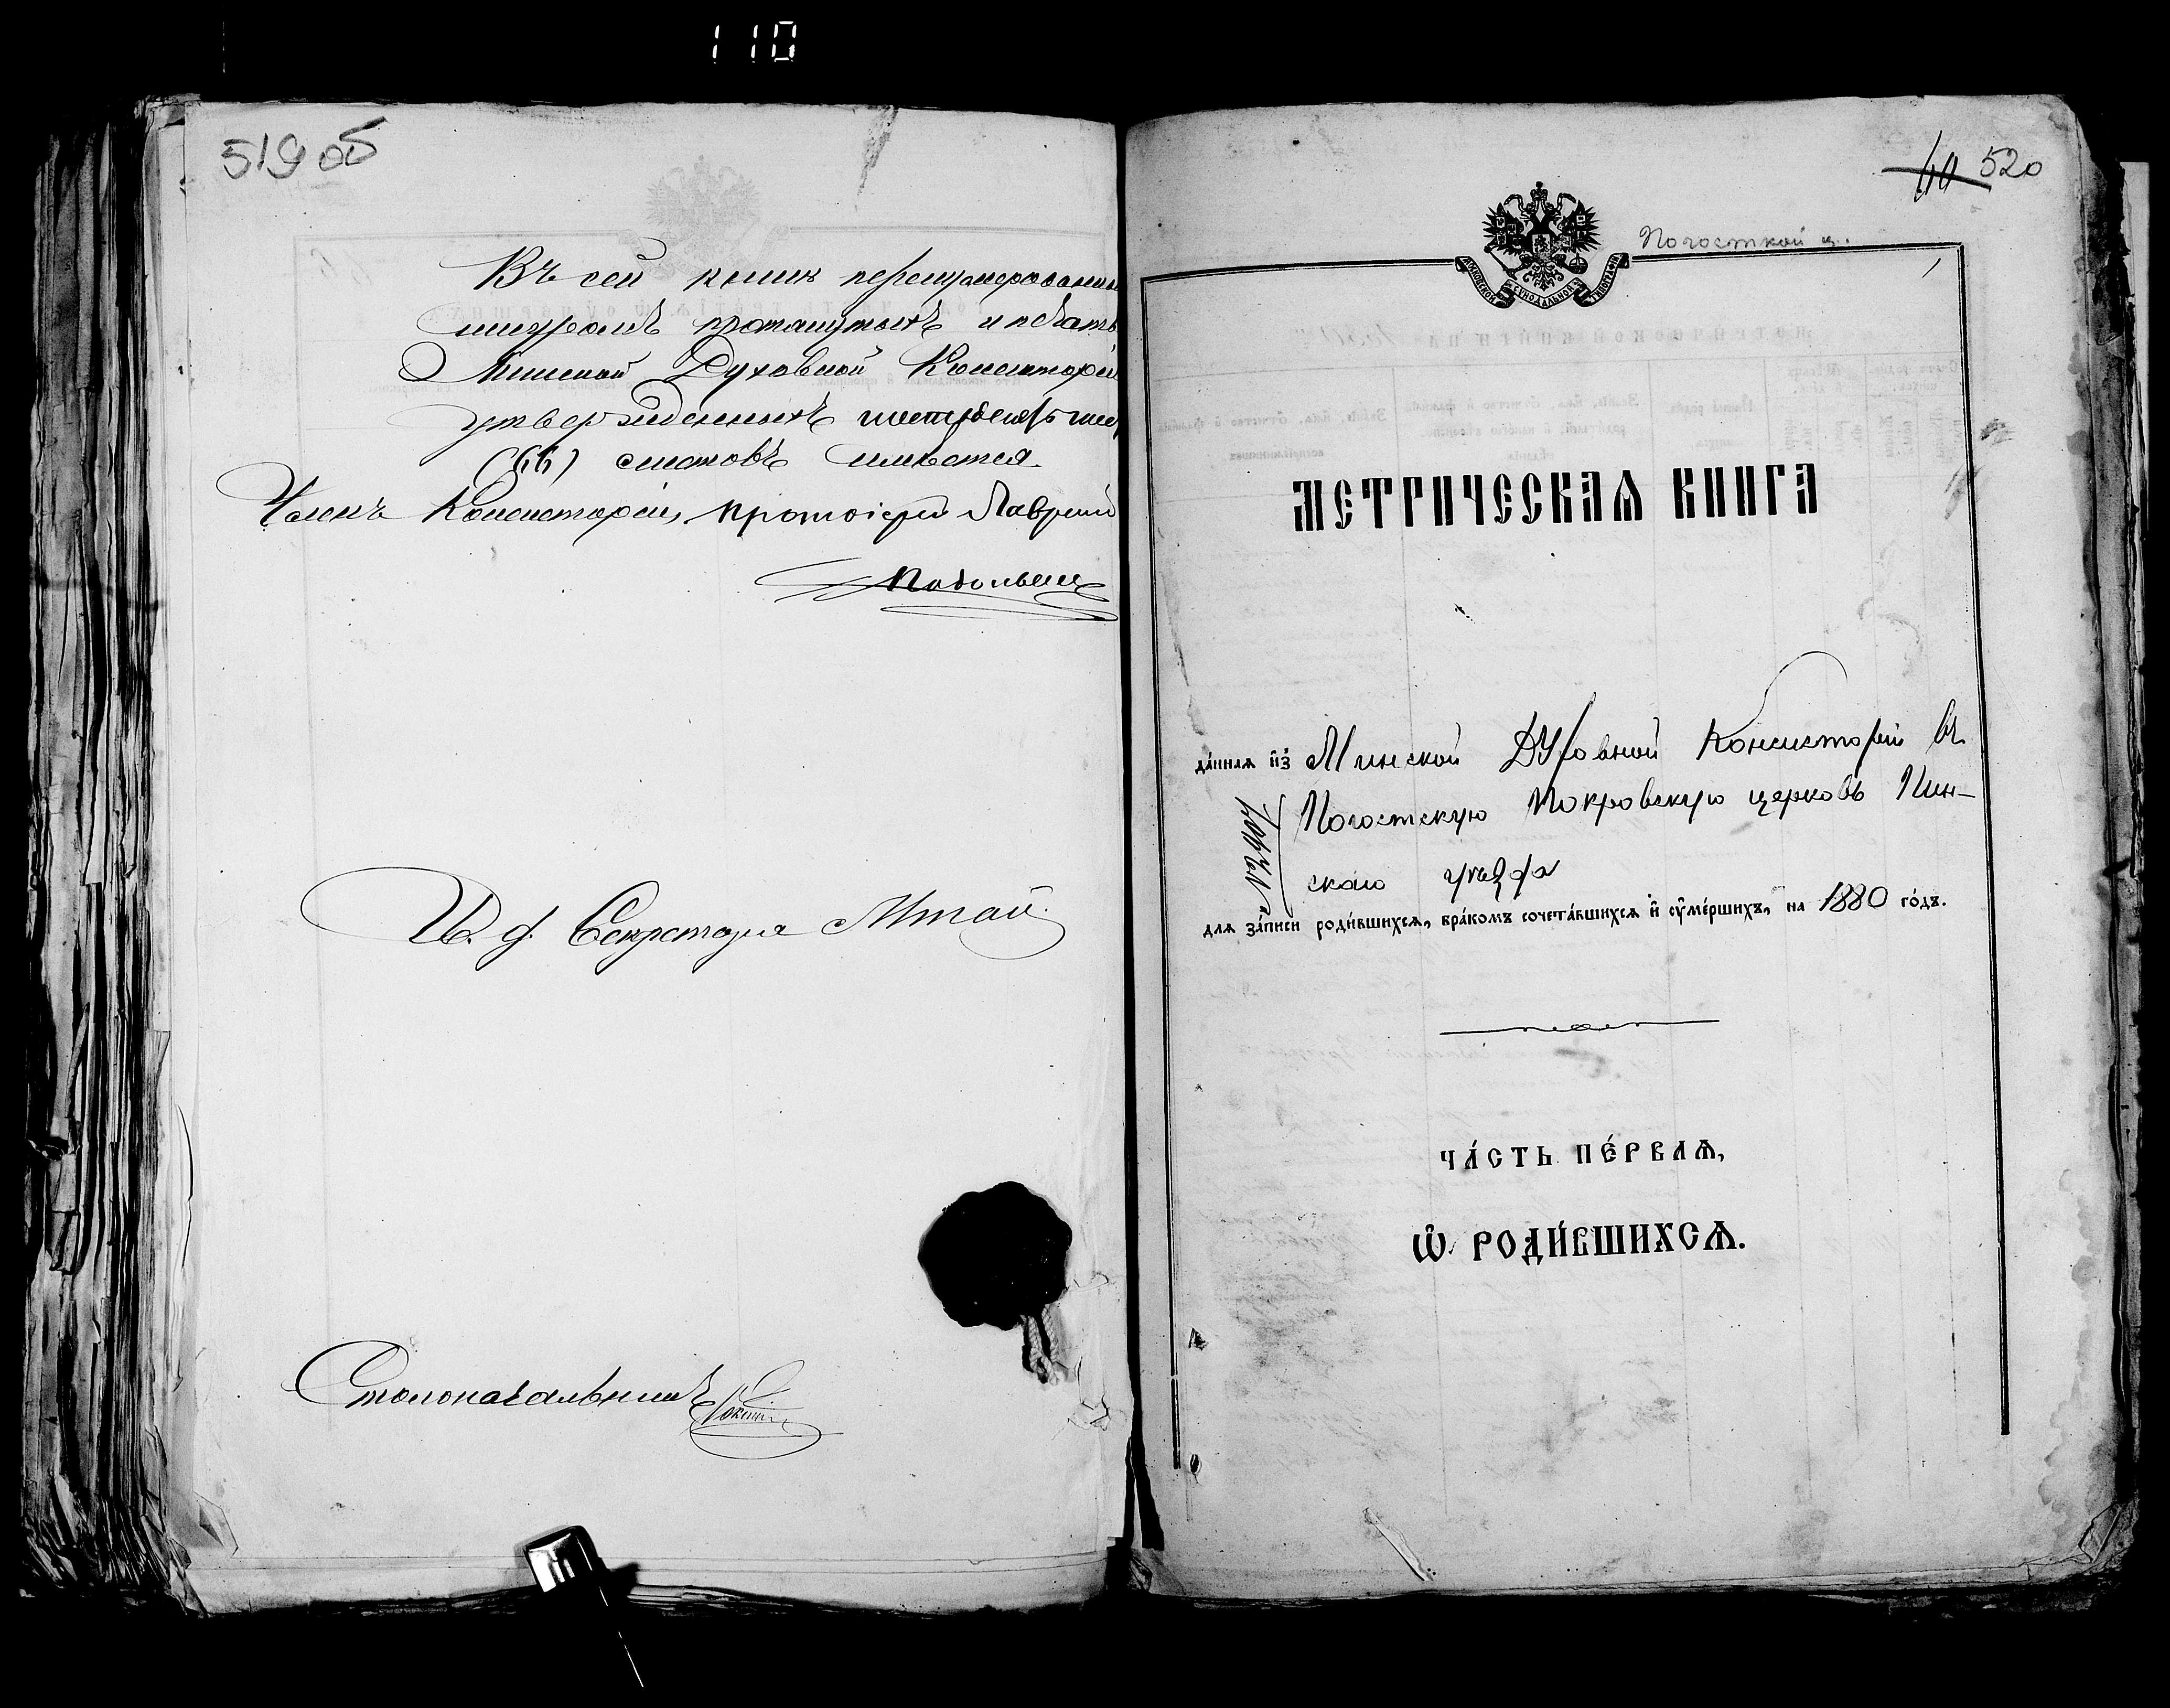 110
519 об
Въ сей книгѣ перенумерованны
шнуромъ протянутыхъ и печатью
Минской Духовной Консисторіи
утвержденныхъ шестьдесятъ шес
(66) листовъ имѣется.
Членъ Консисторіи, протоіерей Лаврентій
И. д. Секретаря
Столоначальникъ
520
Погосткой ц.
1
МОСКОВСКОЙ СѴНОДАЛЬНОЙ ТИПОГРАФІИ
МЕТРИЧЕСКАѦ КНИГА
да́ннаѧ и҆з̾ Минской Духовной Консисторіи въ
Погостскую Покровскую церковь Пин-
скаго уѣзда
длѧ за́писи роди́вшихсѧ, бра́комъ сочета́вшихсѧ и҆ ᲂу҆ме́ршихъ, на 1880 го́дъ.
ЧА́СТЬ ПЕ́РВАѦ,
Ѽ РОДИ́ВШИХСѦ.